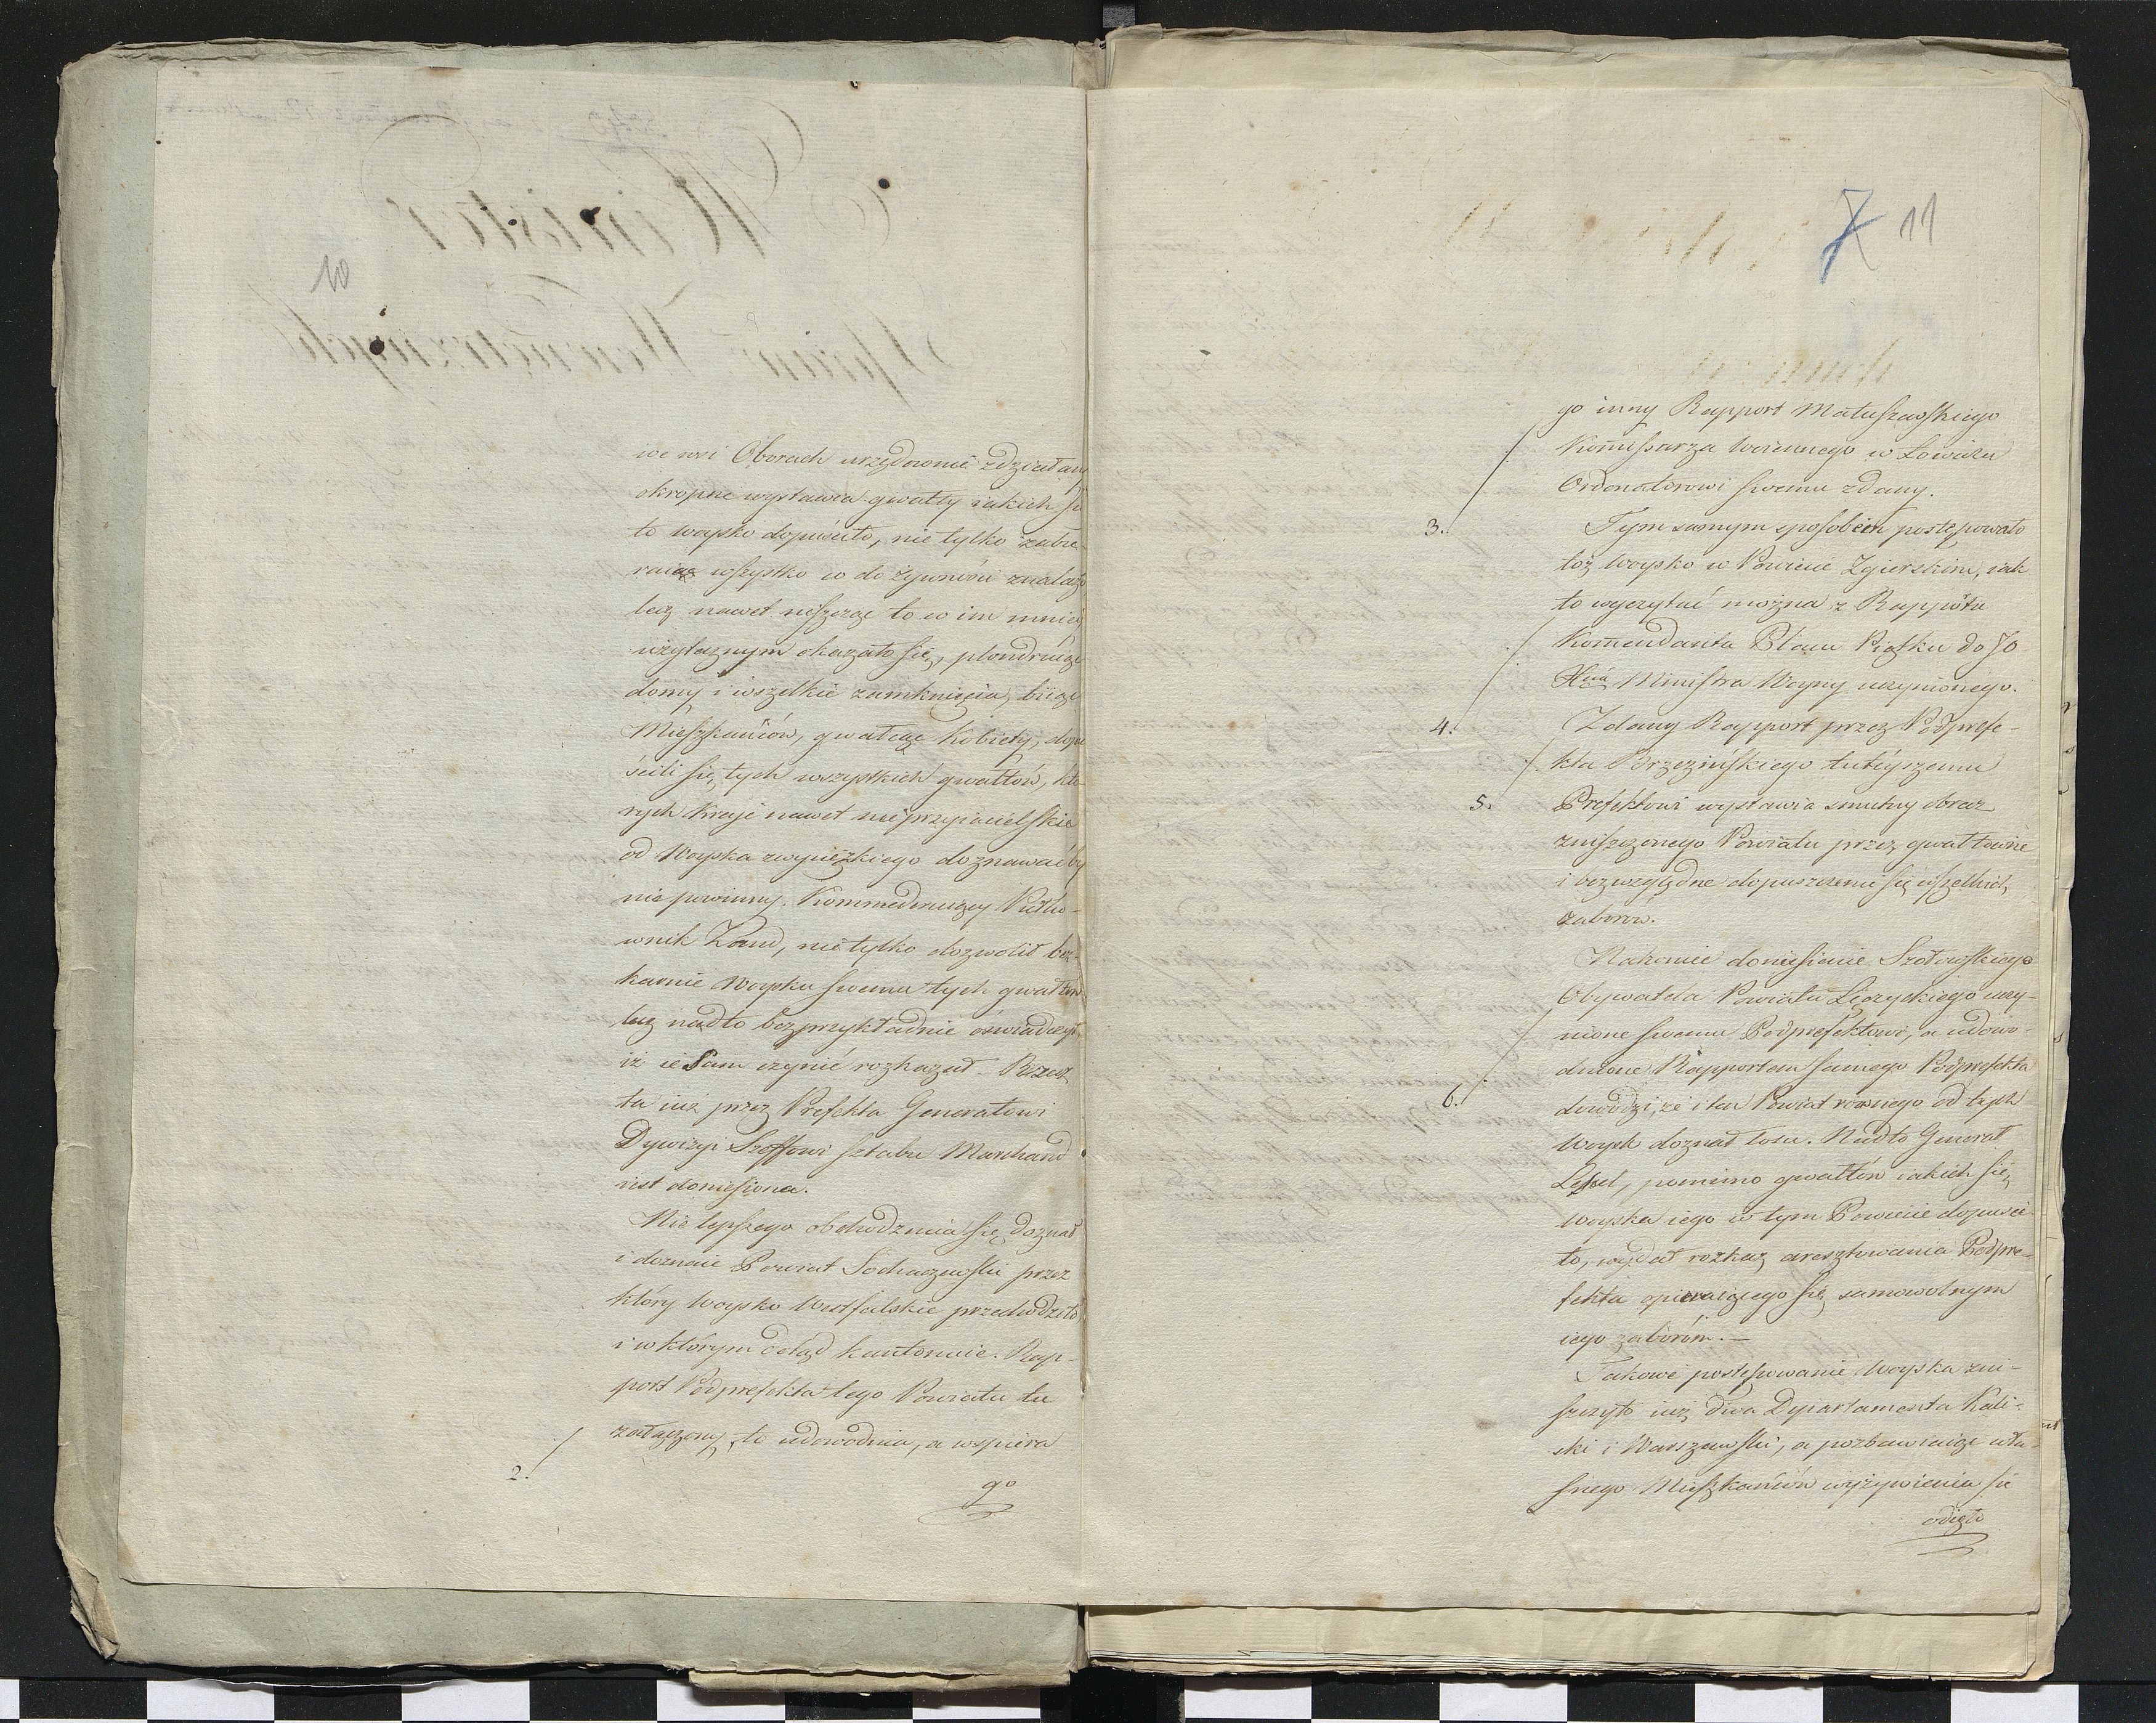 10
we wsi Oborach urzędownie zdziałany
okropne wystawia gwałty iakich się
to woysko dopuściło, nie tylko zabie-
raiąc wszystko co do żywności znalazł
lecz nawet niszcząc to co im mniey
użytecznym okazało się, plondruiąc
domy i wszelkie zamknięcia, biiąc
Mieszkańców, gwałcąc Kobiety, dopu
ścili się tych wszystkich gwałtów, któ
rych Kraje nawet nieprzyiacielskie
od Woyska zwycięzkiego doznawać by
nie powinny. Kommenderuiący Pułko-
wnik Zand, nie tylko dozwolił bez-
karnie Woysku swemu tych gwałtów
lecz nadto bezprzykładnie oswiadczył,
iż ie Sam czynić rozkazał – Rzecz
ta iuż przez Prefekta Generałowi
Dywizyi Szeffowi sztabu Marchand
iest doniesiona.
Nie lepszego obchodzenia się doznał
i doznaie Powiat Sochaczewski przez
który Woysko Westfalskie przechodziło,
i w którym dotąd kantonuie. Rap-
port Podprefekta tego Powiatu tu
2./ załączony, to udowodnia, a wspiera
go
7 11
go inny Rapport Matuszewskiego
Kommissarza Woiennego w Łowiczu
Ordonatorowi swemu zdany.
3. Tym samym sposobem postępowało
toż Woysko w Powiecie Zgierskim, iak
to wyczytać można z Rapportu
Kommendanta Placu Piątku do JO
Xcia Ministra Woyny uczynionego.
4. Zdany Rapport przez Podprefe-
kta Brzezinskiego tuteyszemu
5. Prefektowi wystawia smutny obraz
zniszczonego Powiatu przez gwałtowne
i bezwzględne dopuszczenie się wszelkich
zaborow.
Nakoniec doniesienie Szołowskiego
Obywatela Powiatu Łęczyckiego uczy-
nione swemu Podprefektowi, a udowo-
dnione Rapportem samego Podprefekta
6. dowodzi, że i ten Powiat rownego od tych
Woysk doznał losu. Nadto Generał
Lepel, pomimo gwałtów iakich się
woyska iego w tym Powiecie dopuści-
ło, wydał rozkaz aresztowania Podpre-
fekta opieraiącego się samowolnym
iego zaborom. –
Takowe postępowanie Woyska zni-
szczyło iuż dwa Departamenta Kali-
ski i Warszawski, a pozbawiaiąc wła-
snego Mieszkańców wyżywienia się
odięło